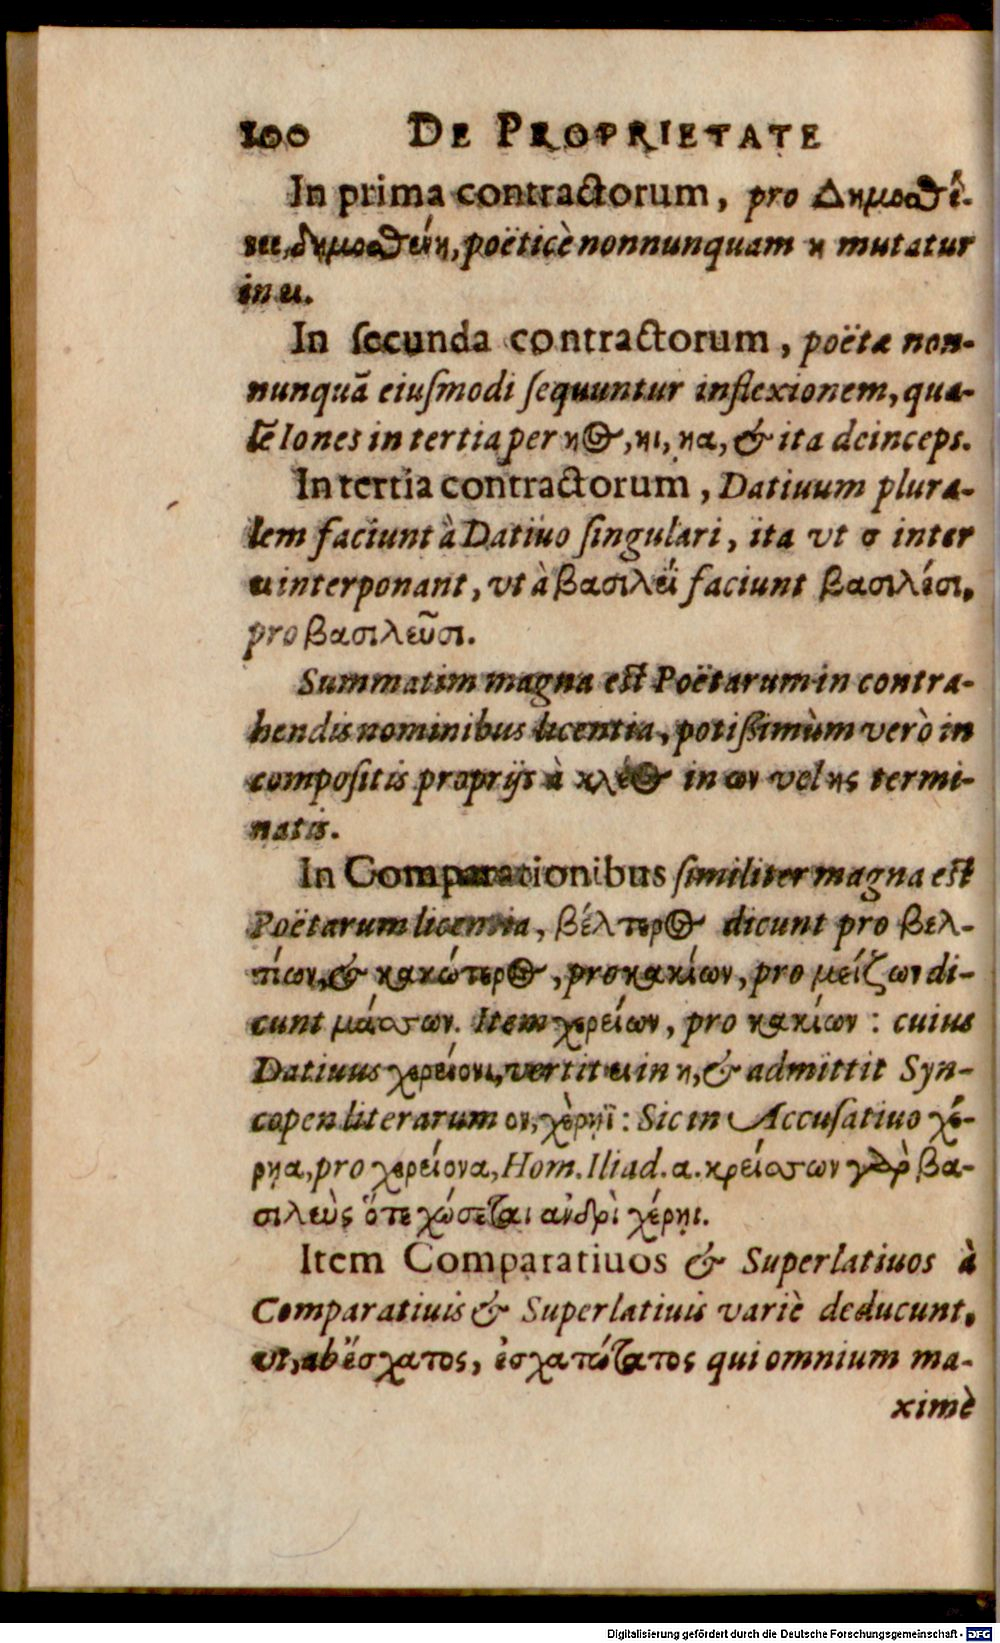 100 DE PROPRIETATE
In prima contractorum, pro Δημοσθέ-
νεε, δημοσθένη, poëticè nonnunquam η mutatur
in ει.
In ſecunda contractorum, poëtæ non-
nunquã eiuſmodi ſequuntur inflexionem, qua-
lẽ Iones in tertia per ηος, ηι, ηα, & ita deinceps.
In tertia contractorum, Datiuum plura-
lem faciunt à Datiuo ſingulari, ita vt σ inter
ει interponant, vt à βασιλέϊ faciunt βασιλέσι,
pro βασιλεῦσι.
Summatim magna est Poëtarum in contra-
hendis nominibus licentia, potiſsimùm verò in
compoſitis proprijs à κλέος in ων vel ης termi-
natis.
In Comparationibus ſimiliter magna est
Poëtarum licentia, βέλτερος dicunt pro βελ-
τίων, & κακώτερος, pro κακίων, pro μείζων di-
cunt μάσσων. Item χερείων, pro κακίων : cuius
Datiuus χερείονι, vertit ει in η, & admittit Syn-
copen literarum ον, χέρηϊ : Sic in Accuſatiuo χέ-
ρηα, pro χερείονα, Hom. Iliad. α. κρείσσων γὰρ βα-
σιλεὺς ὅτε χώσεται ανδρὶ χέρηι.
Item Comparatiuos & Superlatiuos à
Comparatiuis & Superlatiuis variè deducunt,
vt, ab ἔσχατος, ἐσχατώτατος qui omnium ma-
ximè
Digitalisierung gefördert durch die Deutsche Forschungsgemeinschaft - DFG